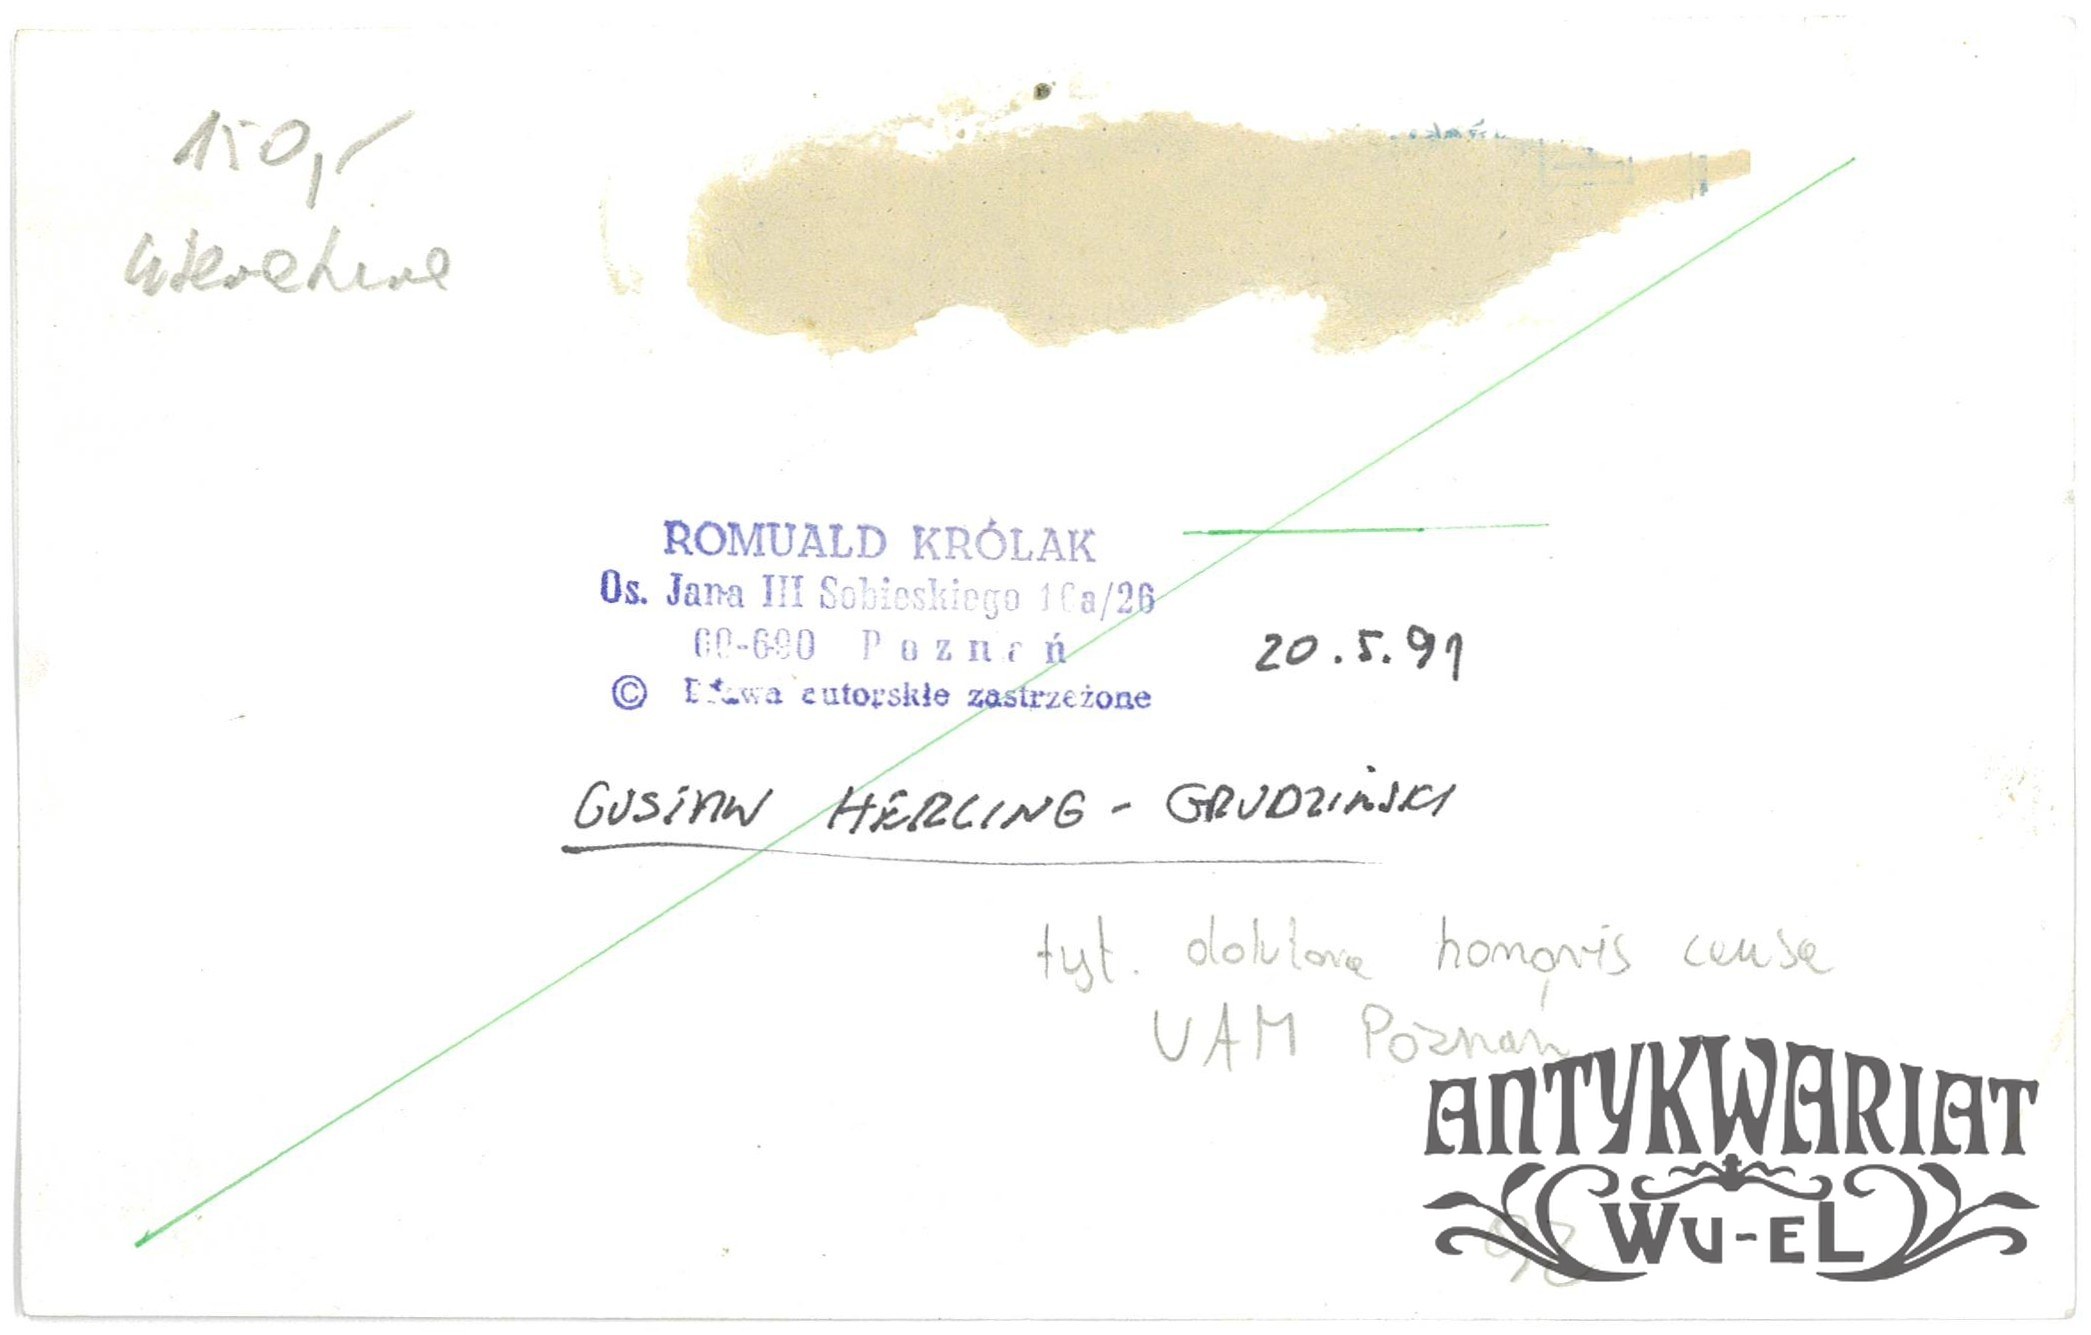 150,-
literatura
ROMUALD KRÓLAK
Os. Jana III Sobieskiego 10a/26
60-690 Poznań
© Prawa autorskie zastrzeżone
20.5.91
GUSTAW HERLING-GRUDZIŃSKI
tyt. doktora honoris causa
UAM Poznań
ANTYKWARIAT
WU-EL